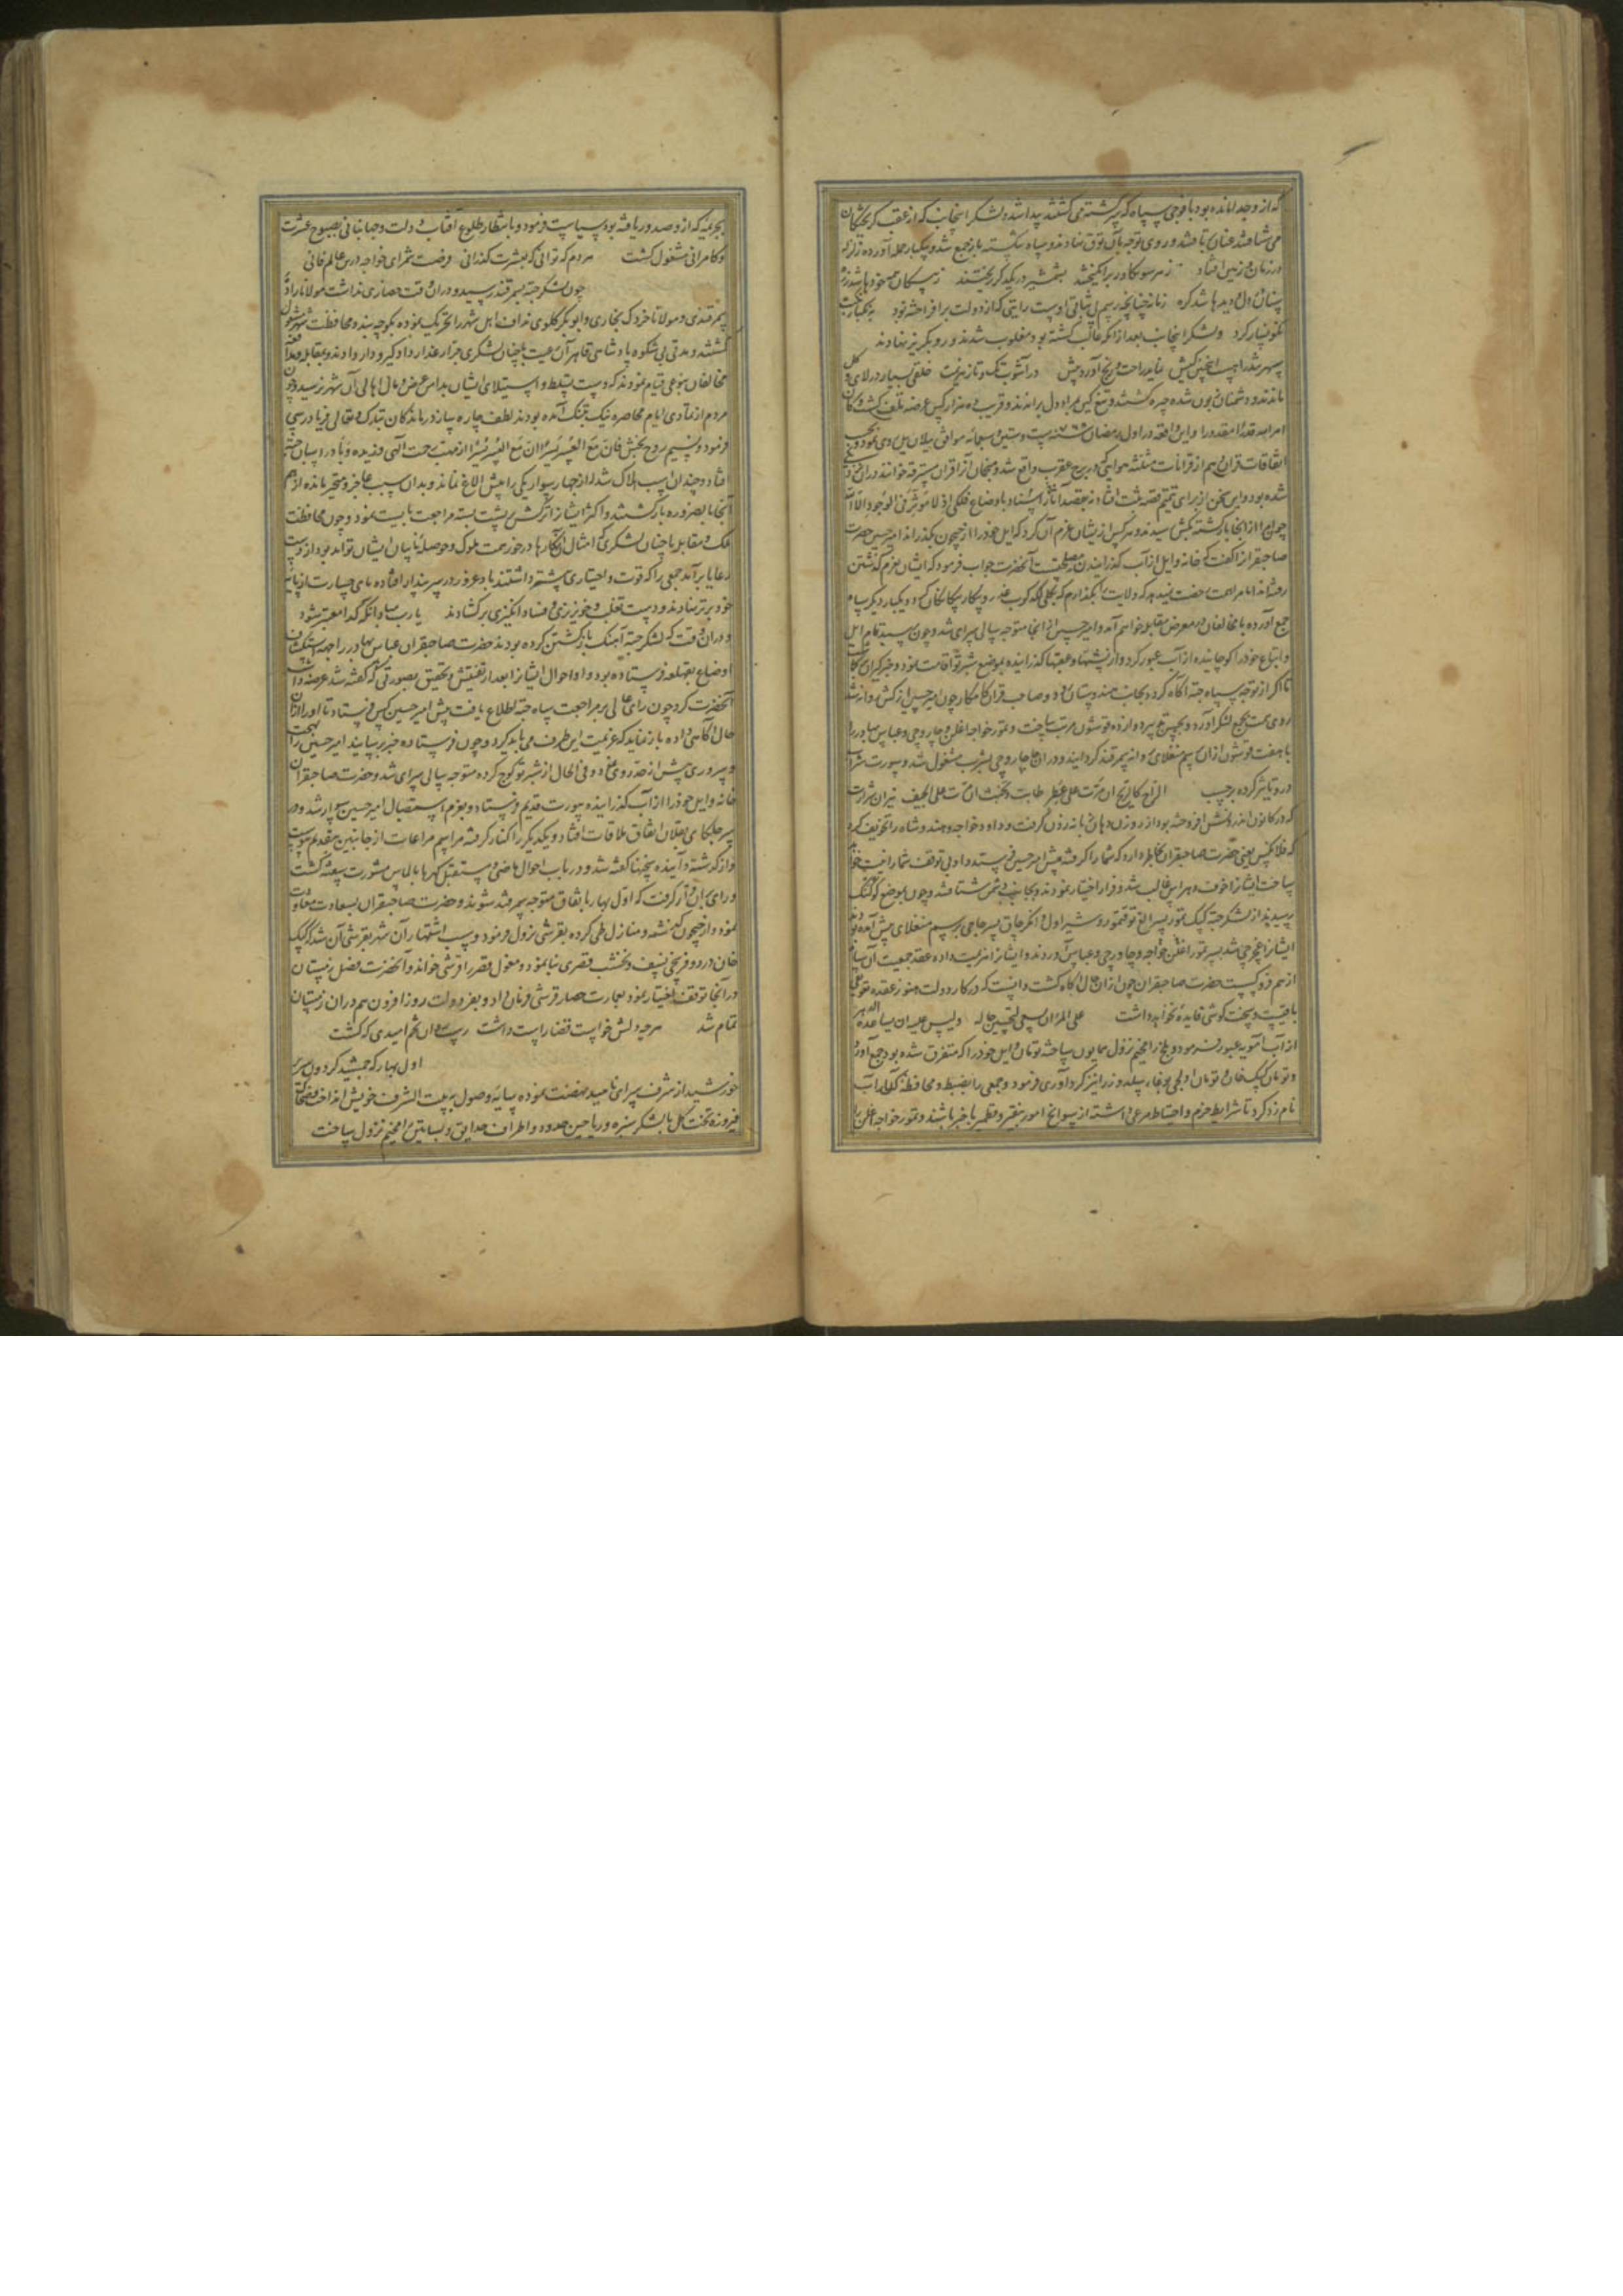 که از وجدا مانده بود با فوجی سپاه که پر گشته می گشتند پیدا شد و لشکر اینجانب که از عقب گریختگان
می شتافتند عنان تافتند و روی توجه بآن توق نهادند و سپاه شکسته باز جمع شد و بیکبار حمله آورده زلزله
در زمان و زمین افتاد ز هر سو تکاور برانگیختند بشمشیر در یکدگر ریختند
پستان و دل دیدها شد گره زمانه چنانچه رسم بی ثباتی اوست رایتی که از دولت برافراخته بود
نگونسار کرد و لشکر اینجانب بعد از آنکه غالب گشته بود مغلوب شدند و رو بگریز نهادند
خلقی بسیار در لای و گل
ماندند و دشمنان چون شده چیره گشتند و تیغ کین براندند و قریب ده هزار کس عرضه تلف گشت و کان
امر الله قدرا مقدورا و این واقعه در اول رمضان سنه ست و ستین و سبعمائه موافق ییلان ییل روی نمود و از عجب
اتفاقات قران دهم از قرانات مثلثه هوایی که در برج عقرب واقع شد
شده بود و این سخن از برای تتمیم قصه ثبت افتاد نه بقصد اسناد آثار باوضاع فلکی اذ لا مؤثر فی الوجود الا الله
چون امرا از آنجا بازگشته بکش رسیدند و هر کس از ایشان عزم آن کرد که ایل خود را از جیحون بگذراند امیر حسین حضرت
صاحبقران را گفت که خانه و ایل از آب گذرانیدن مصلحتست آنحضرت جواب فرمود که ایشان بعزم گذشتن
رفته اند اما مرا همت رخصت نمی دهد که ولایت را بگذارم که بکلی لگدکوب بیگانگان گردد و یکبار دیگر سپاه
جمع آورده با مخالفان در معرض مقابله خواهم آمد و امیر حسین از آنجا متوجه سالی سرای شد و چون رسید تمام ایل
و اتباع خود را کوچانیده از آب عبور کرد و از پشتها و عقبها گذرانیده بموضع شبرتو اقامت نمود و خبرگیران گذاشت
تا اگر از توجه سپاه جته آگاه گردد بجانب هندوستان رود و صاحب قران کامکار چون امیر حسین از کش روانه شد
روی همت بجمع لشکر آورد و دوازده قوشون مرتب ساخت و تمور خواجه اغلن و چاورچی و عباس بهادر را
با هفت قوشون از آن برسم منغلای روانه سمرقند گردانید و در راه چاورچی بشرب مشغول شد و سورت شراب
درو تاثیر کرده برحسب الراح کالریح ان مرت علی عطر طابت و تخبث ان مرت علی الجیف نیران شرارت
که در کانون اندرونش افروخته بود از روزن دهان زبانه زدن گرفت و داود خواجه و هندو شاه را تخویف کرد
که فلانکس یعنی حضرت صاحبقران بخاطر دارد که شما را گرفته پیش امیر حسین فرستد
ساخت ایشان را خوف و هراس غالب شد و فرار اختیار نمودند و بجانب دشمن شتافتند و چون بموضع کوکنگ
رسیدند از لشکر جته کپک تمور پسر الغ توقتمور و شیراول و انکرچاق پسر حاجی برسم منغلای پیش آمده بودند
ایشان را غجرچی شد بسر تمور اغلن خواجه و چاورچی و عباس آوردند و ایشان را هزیمت داده عقد جمعیت آن سپاه
از هم فرو گسست حضرت صاحبقران چون از آن حال آگاه گشت دانست که در کار دولت هنوز عقده تعویق
باقیست و سخت کوشی فایده نخواهد داشت علی المرء ان یسعی لتحسین حاله و لیس علیه ان یساعده الدهر
از آب آمویه عبور فرمود و بلخ را مخیم نزول همایون ساخته تومان و ایل خود را که متفرق شده بود جمع آورد
و تومان کپک خان و تومان اولجی بوغای سلدوز را نیز گردآوری فرمود و جمعی را بضبط و محافظت کنار آب
نام زد کرد تا شرایط حزم و احتیاط مرعی داشته از سوانح امور بنقیر و قطمیر باخبر باشند و تمور خواجه اغلن را
بجریمه که ازو صدور یافته بود سیاست فرمود و بانتظار طلوع آفتاب دولت و جهانبانی بصبوح عشرت
و کامرانی مشغول گشت هر دم که توانی که بعشرت گذرانی فرصت شمر ای خواجه درین عالم فانی
چون لشکر جته بسمرقند رسید و در آن وقت حصاری نداشت مولانا زاده
سمرقندی و مولانا خردک بخاری و ابوبکر کلوی نداف اهل شهر را تحریک نموده بکوچه بند و محافظت شهر مشغول
گشتند و مدتی بی شکوه پادشاهی قاهر آن رعیت با چنان لشکری جرار غدار داد گیر و دار دادند و بمقابله و مدافعه
مخالفان بنوعی قیام نمودند که دست تسلط و استیلای ایشان بدامن عرض و مال اهالی آن شهر نرسید و چون
مردم از تمادی ایام محاصره نیک بتنگ آمده بودند لطف چاره ساز درماندگان تبارک و تعالی فریادرسی
فرمود و نسیم روح بخش فان مع العسر یسرا ان مع العسر یسرا از مهب رحمت الهی وزیده وبا در اسبان جته
افتاد و چندان اسب هلاک شد که از چهار سوار یکی را بیش الاغ نماند و بدان سبب عاجز و متحیر مانده از هم
آنجا بضروره بازگشتند و اکثر ایشان را ترکش بر پشت بسته مراجعت بایست نمود و چون محافظت
ملک و مقابله با چنان لشکری که امثال آن کارها در خور همت ملوک و حوصله ناپاک ایشان تواند بود از دست
رعایا برآمد جمعی را که قوت و اختیاری بیشتر داشتند باد غرور در سر پندار افتاده پای جسارت از پایه
خود برتر نهادند و دست تغلب و خونریزی و فساد انگیزی برگشادند یا رب مباد آنکه گدا معتبر شود
و در آن وقت که لشکر جته آهنگ بازگشتن کرده بودند حضرت صاحبقران عباس بهادر را جهت استکشاف
اوضاع بقهلغه فرستاده بود و او احوال ایشان را بعد از تفتیش و تحقیق بصورتی که گفته شد عرضه داشت
آنحضرت کرد چون رای عالی بر مراجعت سپاه جته اطلاع یافت پیش امیر حسین کس فرستاد تا او را از آن
حال آگاهی داده باز نماید که عزیمت این طرف می باید کرد و چون فرستاده خبر رسانید امیر حسین را بهجت
و سروری بیش از حد روی نمود و فی الحال از شبرتو کوچ کرده متوجه سالی سرای شد و حضرت صاحبقران
خانه و ایل خود را از آب گذرانیده بیورت قدیم فرستاد و بعزم استقبال امیر حسین سوار شد و در
سر جلگای بقلان اتفاق ملاقات افتاد و یکدیگر را کنار گرفته مراسم مراعات از جانبین بتقدیم پیوست
و از گذشته و آینده سخنها گفته شد و در باب احوال ماضی و مستقبل گهرها بالماس مشورت سفته گشت
و رای بر آن قرار گرفت که اول بهار باتفاق متوجه سمرقند شوند و حضرت صاحبقران بسعادت معاودت
نموده از جیحون گذشته و منازل طی کرده بقرشی نزول فرمود و سبب اشتهار آن شهر بقرشی آن شد که کپک
خان در دو فرسخی نسف و نخشب قصری بنا نموده و مغول قصر را قرشی خوانند و آنحضرت فصل زمستان
در آنجا توقف اختیار نمود و بعمارت حصار قرشی فرمان داد و بفر دولت روزافزون هم در آن زمستان
تمام شد هر چه دلش خواست قضا راست داشت رست از آن تخم امیدی که کشت
اول بهار که جمشید گردون سریر
خورشید از شرف سرای ناهید نهضت نموده سایه وصول بر بیت الشرف خویش انداخت
فیروزه تخت گل با لشکر سبزه و ریاحین حدود و اطراف حدایق و بساتین را مخیم نزول ساخت